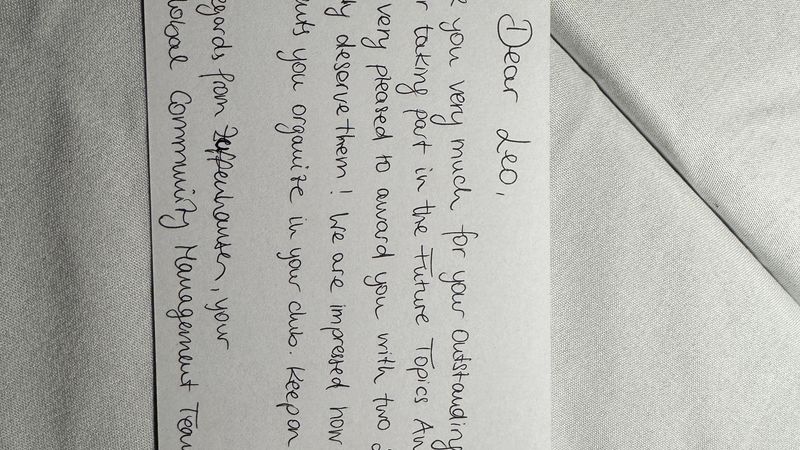 Dear Leo,
you very much for your outstanding
taking part in the Future Topics
very pleased to award you with two
deserve them! We are impressed how
you organize in your club. Keep on
from Zuffenhausen, your
Community Management Team